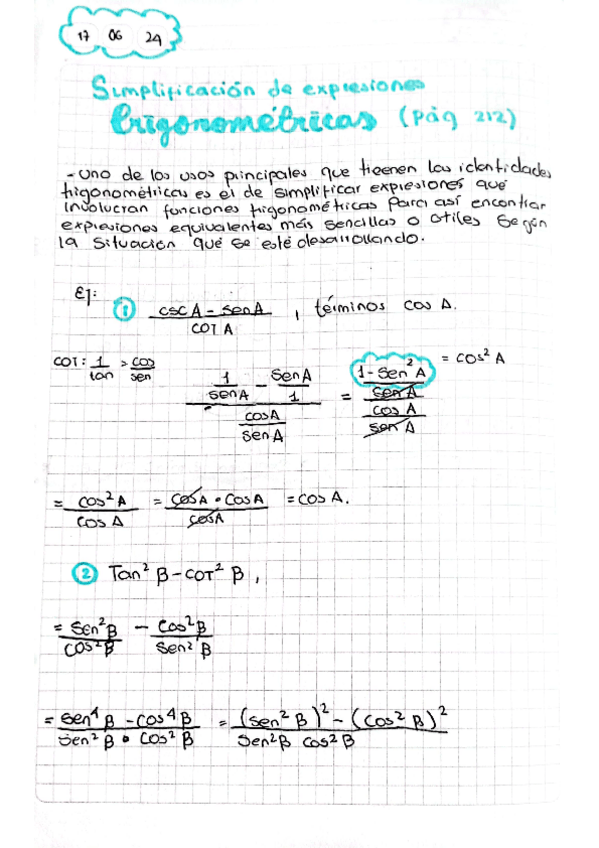 17 06 24
Simplificación de expresiones
trigonométricas (pág 212)
- Uno de los usos principales que tieenen las identidades
trigonométricas es el de simplificar expresiones que
involucran funciones trigonométricas para así encontrar
expresiones equivalentes más sencillas o útiles según
la situación que se esté desarrollando.
Ej:
① (csc A - sen A)/(COT A) , términos cos A.
COT: 1/tan > cos/sen
(1/sen A - Sen A/1)/(cos A/sen A) = ((1 - Sen² A)/sen A)/(cos A/sen A) = cos² A
= cos² A/cos A = (cos A • cos A)/cos A = cos A.
② Tan² β - COT² β ,
= Sen² β/cos² β - Cos² β/Sen² β
= (sen⁴ β - cos⁴ β)/(sen² β • cos² β) = ((sen² β)² - (cos² β)²)/(sen² β cos² β)